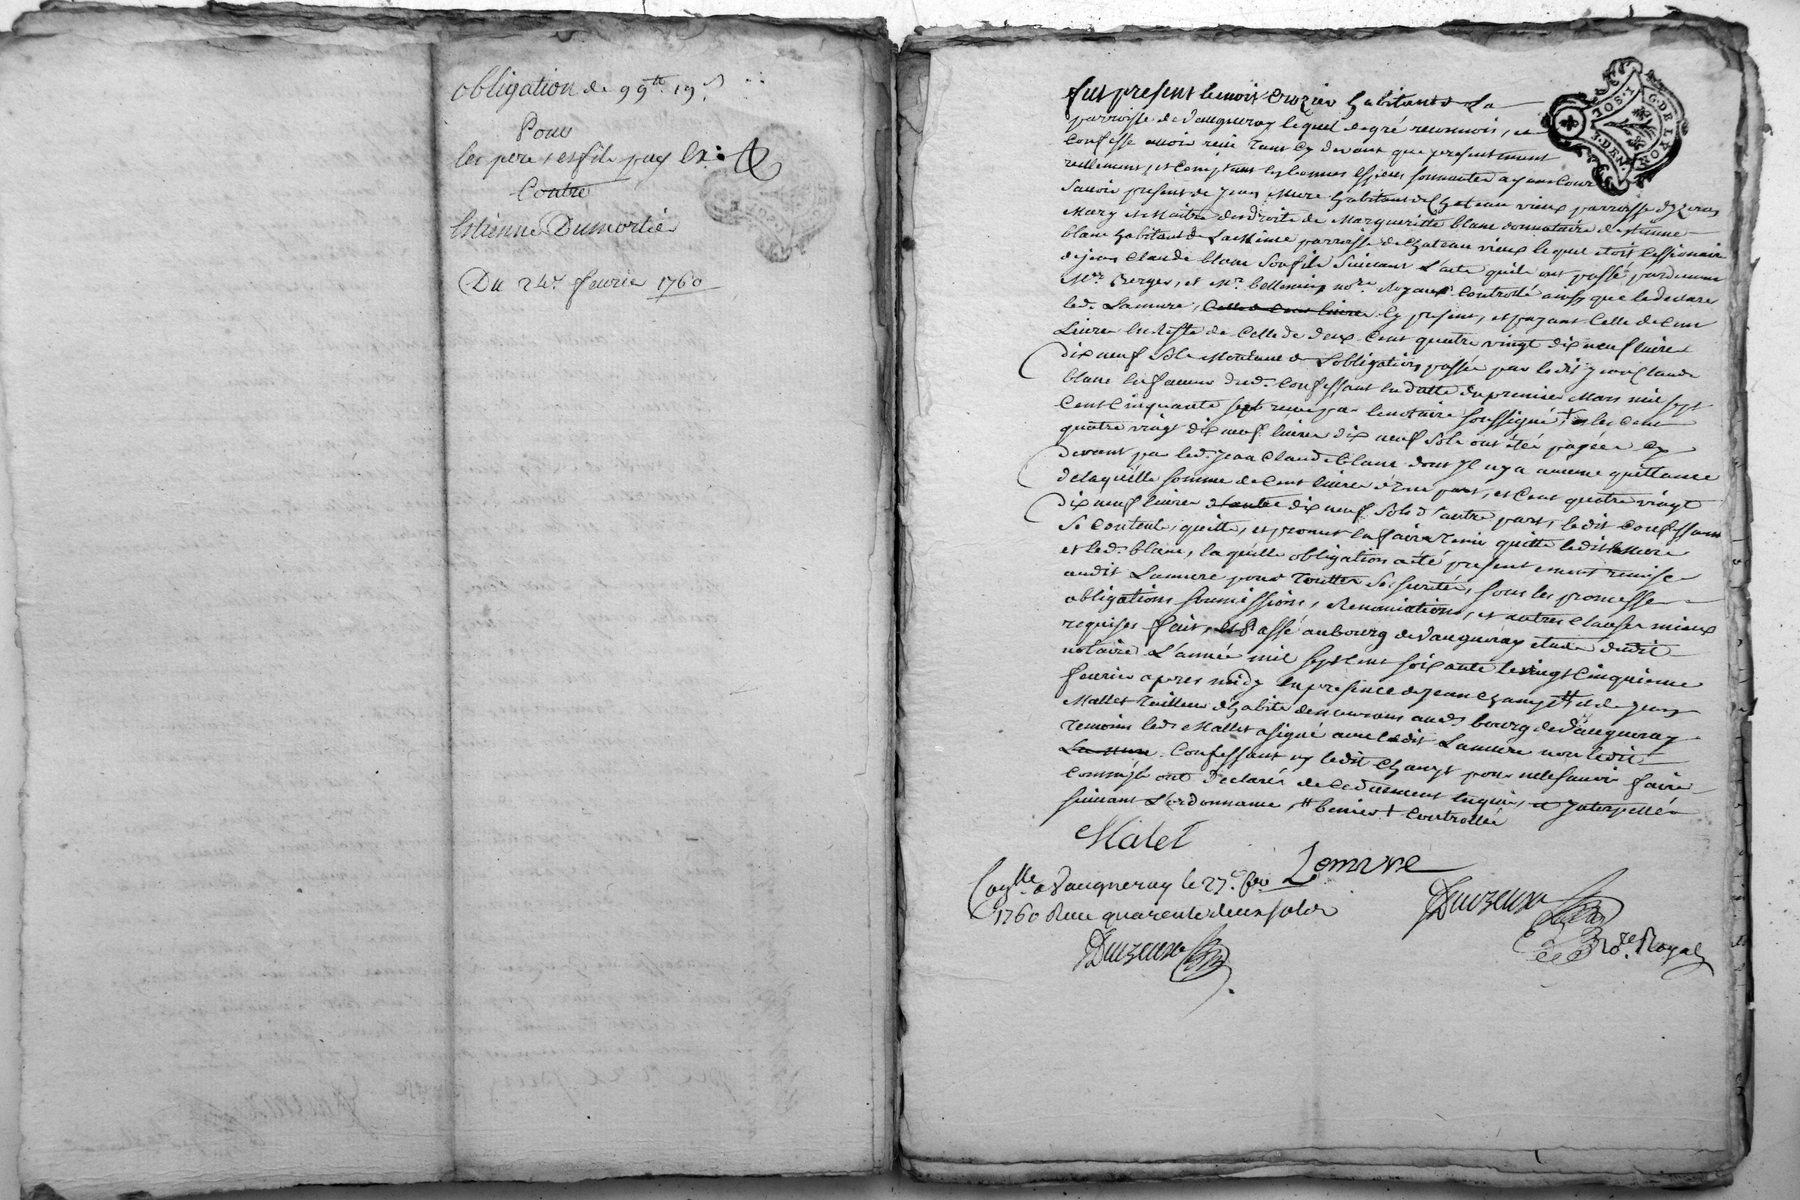 obligation de 99ᵗᵗ 19ˢ
Pour
les pere et fils
Contre
Estienne Dumortier
Du 24ᵉ fevrier 1760
1 SOL
3 DEN.
G. DE LYON
fut present benoit Crozier habitant de La
parroisse de Vaugneray lequel de gré reconnoit, et
Confesse avoir reçu tant cy devant que presentement
reellement, et Comptant en bonnes especes sonnantes ayant Cours
Savoir present de jean Mure habitant de Chateau vieux parroisse dyzeron
Mary et Maitre des droits de Margueritte blanc donnataire destienne
blanc habitant de La meme parroisse de Chateau vieux lequel etoit Cessionaire
de jean Claude blanc son fils Suivant L'acte quils ont passé pardevant
Mᵉʳ Berger, et Mʳ bellemin noʳᵉ Royaux Controllé ainsy que le declare
led. Lamure, cy present, et payant Celle de Cent
Livres en reste de Celle de deux Cent quatre vingt dix neuf livres
dix neuf Sols Montant de L'obligation passée par ledit jean Claude
blanc en faveur dud. Confessant en datte du premier Mars mil sept
Cent Cinquante sept recue par le notaire soussigné + et les Cent
quatre vingt dix neuf livres dix neuf Sols ont été payées Cy
devant par led. jean Claude blanc dont Il n'y a aucune quittance
de laquelle somme de Cent livres d'une part, et Cent quatre vingt
dix neuf livres dix neuf Sols d'autre part, ledit Confessant
se Contente, quitte, et promet en faire tenir quitte ledit lamure
et led. blanc, laquelle obligation a été presentement remise
audit Lamure pour toutte Sa sureté, sous les promesses
obligations soumissions, Renonciations, et autres Clauses mieux
requises fait, et Passé au bourg de Vaugneray etude dudit
notaire L'année mil sept cent soixante le vingt Cinquieme
fevrier apres midy En presence de jean Champt et de jean
Mallet Tailleur d'habits demeurants aud. bourg de Vaugneray
temoins led. Mallet a signé avec ledit Lamure non ledit
Confessant ny ledit Champt pour ne le Savoir faire
Comm'ils ont Declarés de Ce duement enquis, et Interpellés
suivant L'ordonnance, Controllée
Malet
Lemure
Coⁿˡˡᵉ a Vaugneray le 27ᵉ fev
1760 Reçu quarente deux sols
Noʳᵉ Royal